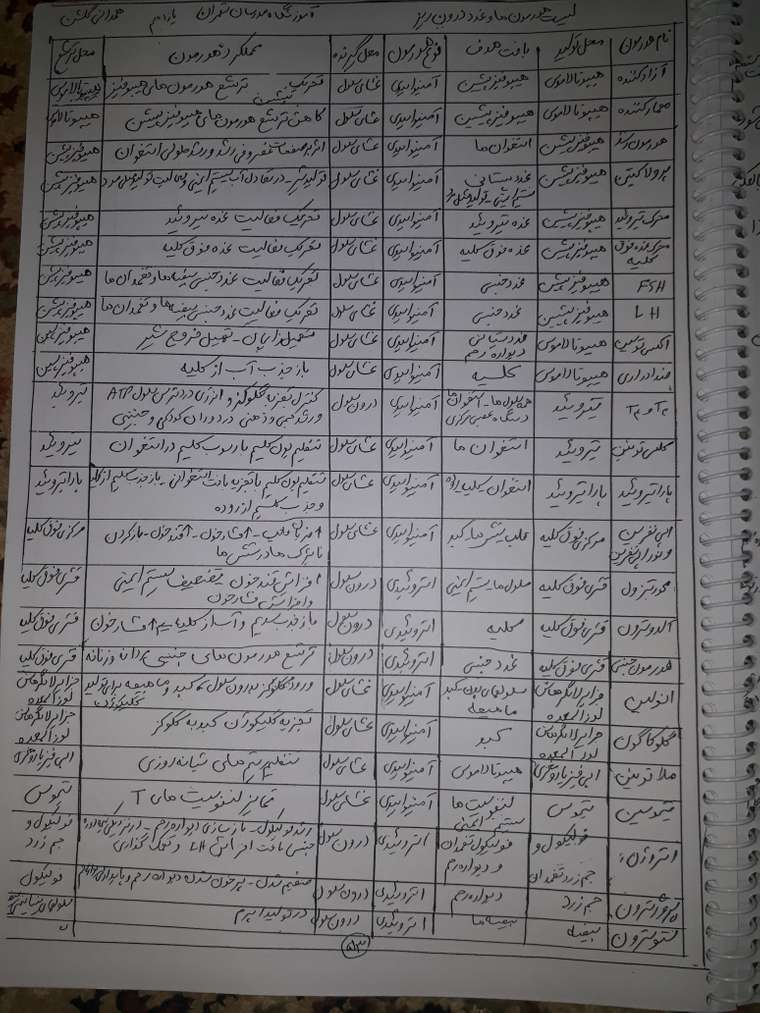 لیست هورمون ها و غدد درون ریز آموزشگاه مدرسان تهران یازدهم
نام هورمون محل تولید بافت هدف نوع هورمون محل گیرنده عملکرد هورمون محل ترشح
آزادکننده هیپوتالاموس هیپوفیز پیشین آمینواسیدی غشای سلول تحریک ترشح هورمون های هیپوفیز پیشین هیپوتالاموس
مهارکننده هیپوتالاموس هیپوفیز پیشین آمینواسیدی غشای سلول کاهش ترشح هورمون های هیپوفیز پیشین هیپوتالاموس
هورمون رشد هیپوفیز پیشین استخوان ها آمینواسیدی غشای سلول اثر بر صفحات غضروفی رشد و رشد طولی استخوان هیپوفیز پیشین
پرولاکتین هیپوفیز پیشین غدد پستانی آمینواسیدی غشای سلول تولید شیر - در تعادل آب سیستم ایمنی و فعالیت تولیدمثل مرد هیپوفیز پیشین
محرک تیروئید هیپوفیز پیشین غده تیروئید آمینواسیدی غشای سلول تحریک فعالیت غده تیروئید هیپوفیز پیشین
محرک غده فوق کلیه هیپوفیز پیشین غده فوق کلیه آمینواسیدی غشای سلول تحریک فعالیت غده فوق کلیه هیپوفیز پیشین
FSH هیپوفیز پیشین غدد جنسی آمینواسیدی غشای سلول تحریک فعالیت غدد جنسی بیضه ها و تخمدان ها هیپوفیز پیشین
LH هیپوفیز پیشین غدد جنسی آمینواسیدی غشای سلول تحریک فعالیت غدد جنسی بیضه ها و تخمدان ها هیپوفیز پیشین
اکسی توسین هیپوتالاموس غدد پستانی دیواره رحم آمینواسیدی غشای سلول تسهیل زایمان - تسهیل خروج شیر هیپوفیز پسین
ضدادراری هیپوتالاموس کلیه آمینواسیدی غشای سلول بازجذب آب از کلیه هیپوفیز پسین
T۳ و T۴ تیروئید همه سلول ها - استخوان ها دستگاه عصبی مرکزی آمینواسیدی درون سلول کنترل تجزیه گلوکز و انرژی در دسترس سلول ATP
و رشد جسمی و ذهنی در دوران کودکی و جنینی تیروئید
کلسی تونین تیروئید استخوان ها آمینواسیدی غشای سلول تنظیم یون کلسیم با رسوب کلسیم در استخوان تیروئید
پاراتیروئید پاراتیروئید استخوان - کلیه - روده آمینواسیدی غشای سلول تنظیم یون کلسیم با تجزیه بافت استخوانی - بازجذب کلسیم از کلیه
و جذب کلسیم از روده پاراتیروئید
اپی نفرین و نوراپی نفرین مرکزی فوق کلیه قلب - شش ها - کبد آمینواسیدی غشای سلول افزایش ضربان قلب - ↑فشار خون - ↑قند خون - باز کردن
نایژک ها در شش ها مرکزی فوق کلیه
کورتیزول قشری فوق کلیه سلول های سیستم ایمنی استروئیدی درون سلول افزایش قند خون - تضعیف سیستم ایمنی
و افزایش فشار خون قشری فوق کلیه
آلدوسترون قشری فوق کلیه کلیه استروئیدی درون سلول بازجذب سدیم و آب از کلیه ↑فشار خون قشری فوق کلیه
هورمون جنسی قشری فوق کلیه غدد جنسی استروئیدی درون سلول ترشح هورمون های جنسی مردانه و زنانه قشری فوق کلیه
انسولین جزایر لانگرهانس لوزالمعده سلول های بدن کبد ماهیچه آمینواسیدی غشای سلول ورود گلوکز به درون سلول ها کبد و ماهیچه برای تولید گلیکوژن جزایر لانگرهانس لوزالمعده
گلوکاگون جزایر لانگرهانس لوزالمعده کبد آمینواسیدی غشای سلول تجزیه گلیکوژن کبد به گلوکز جزایر لانگرهانس لوزالمعده
ملاتونین اپی فیز هیپوتالاموس آمینواسیدی غشای سلول تنظیم ریتم های شبانه روزی اپی فیز
تیموسین تیموس لنفوسیت ها سیستم ایمنی آمینواسیدی غشای سلول تمایز لنفوسیت های T تیموس
استروژن فولیکول و جسم زرد تخمدان فولیکول تخمدان و دیواره رحم استروئیدی درون سلول رشد فولیکول - بازسازی دیواره رحم
جنسی باعث افزایش LH و تخمک گذاری فولیکول و جسم زرد
پروژسترون جسم زرد دیواره رحم استروئیدی درون سلول ضخیم شدن - پرخون شدن دیواره رحم و پایداری فولیکول
تستوسترون بیضه بیضه ها استروئیدی درون سلول در تولید اسپرم